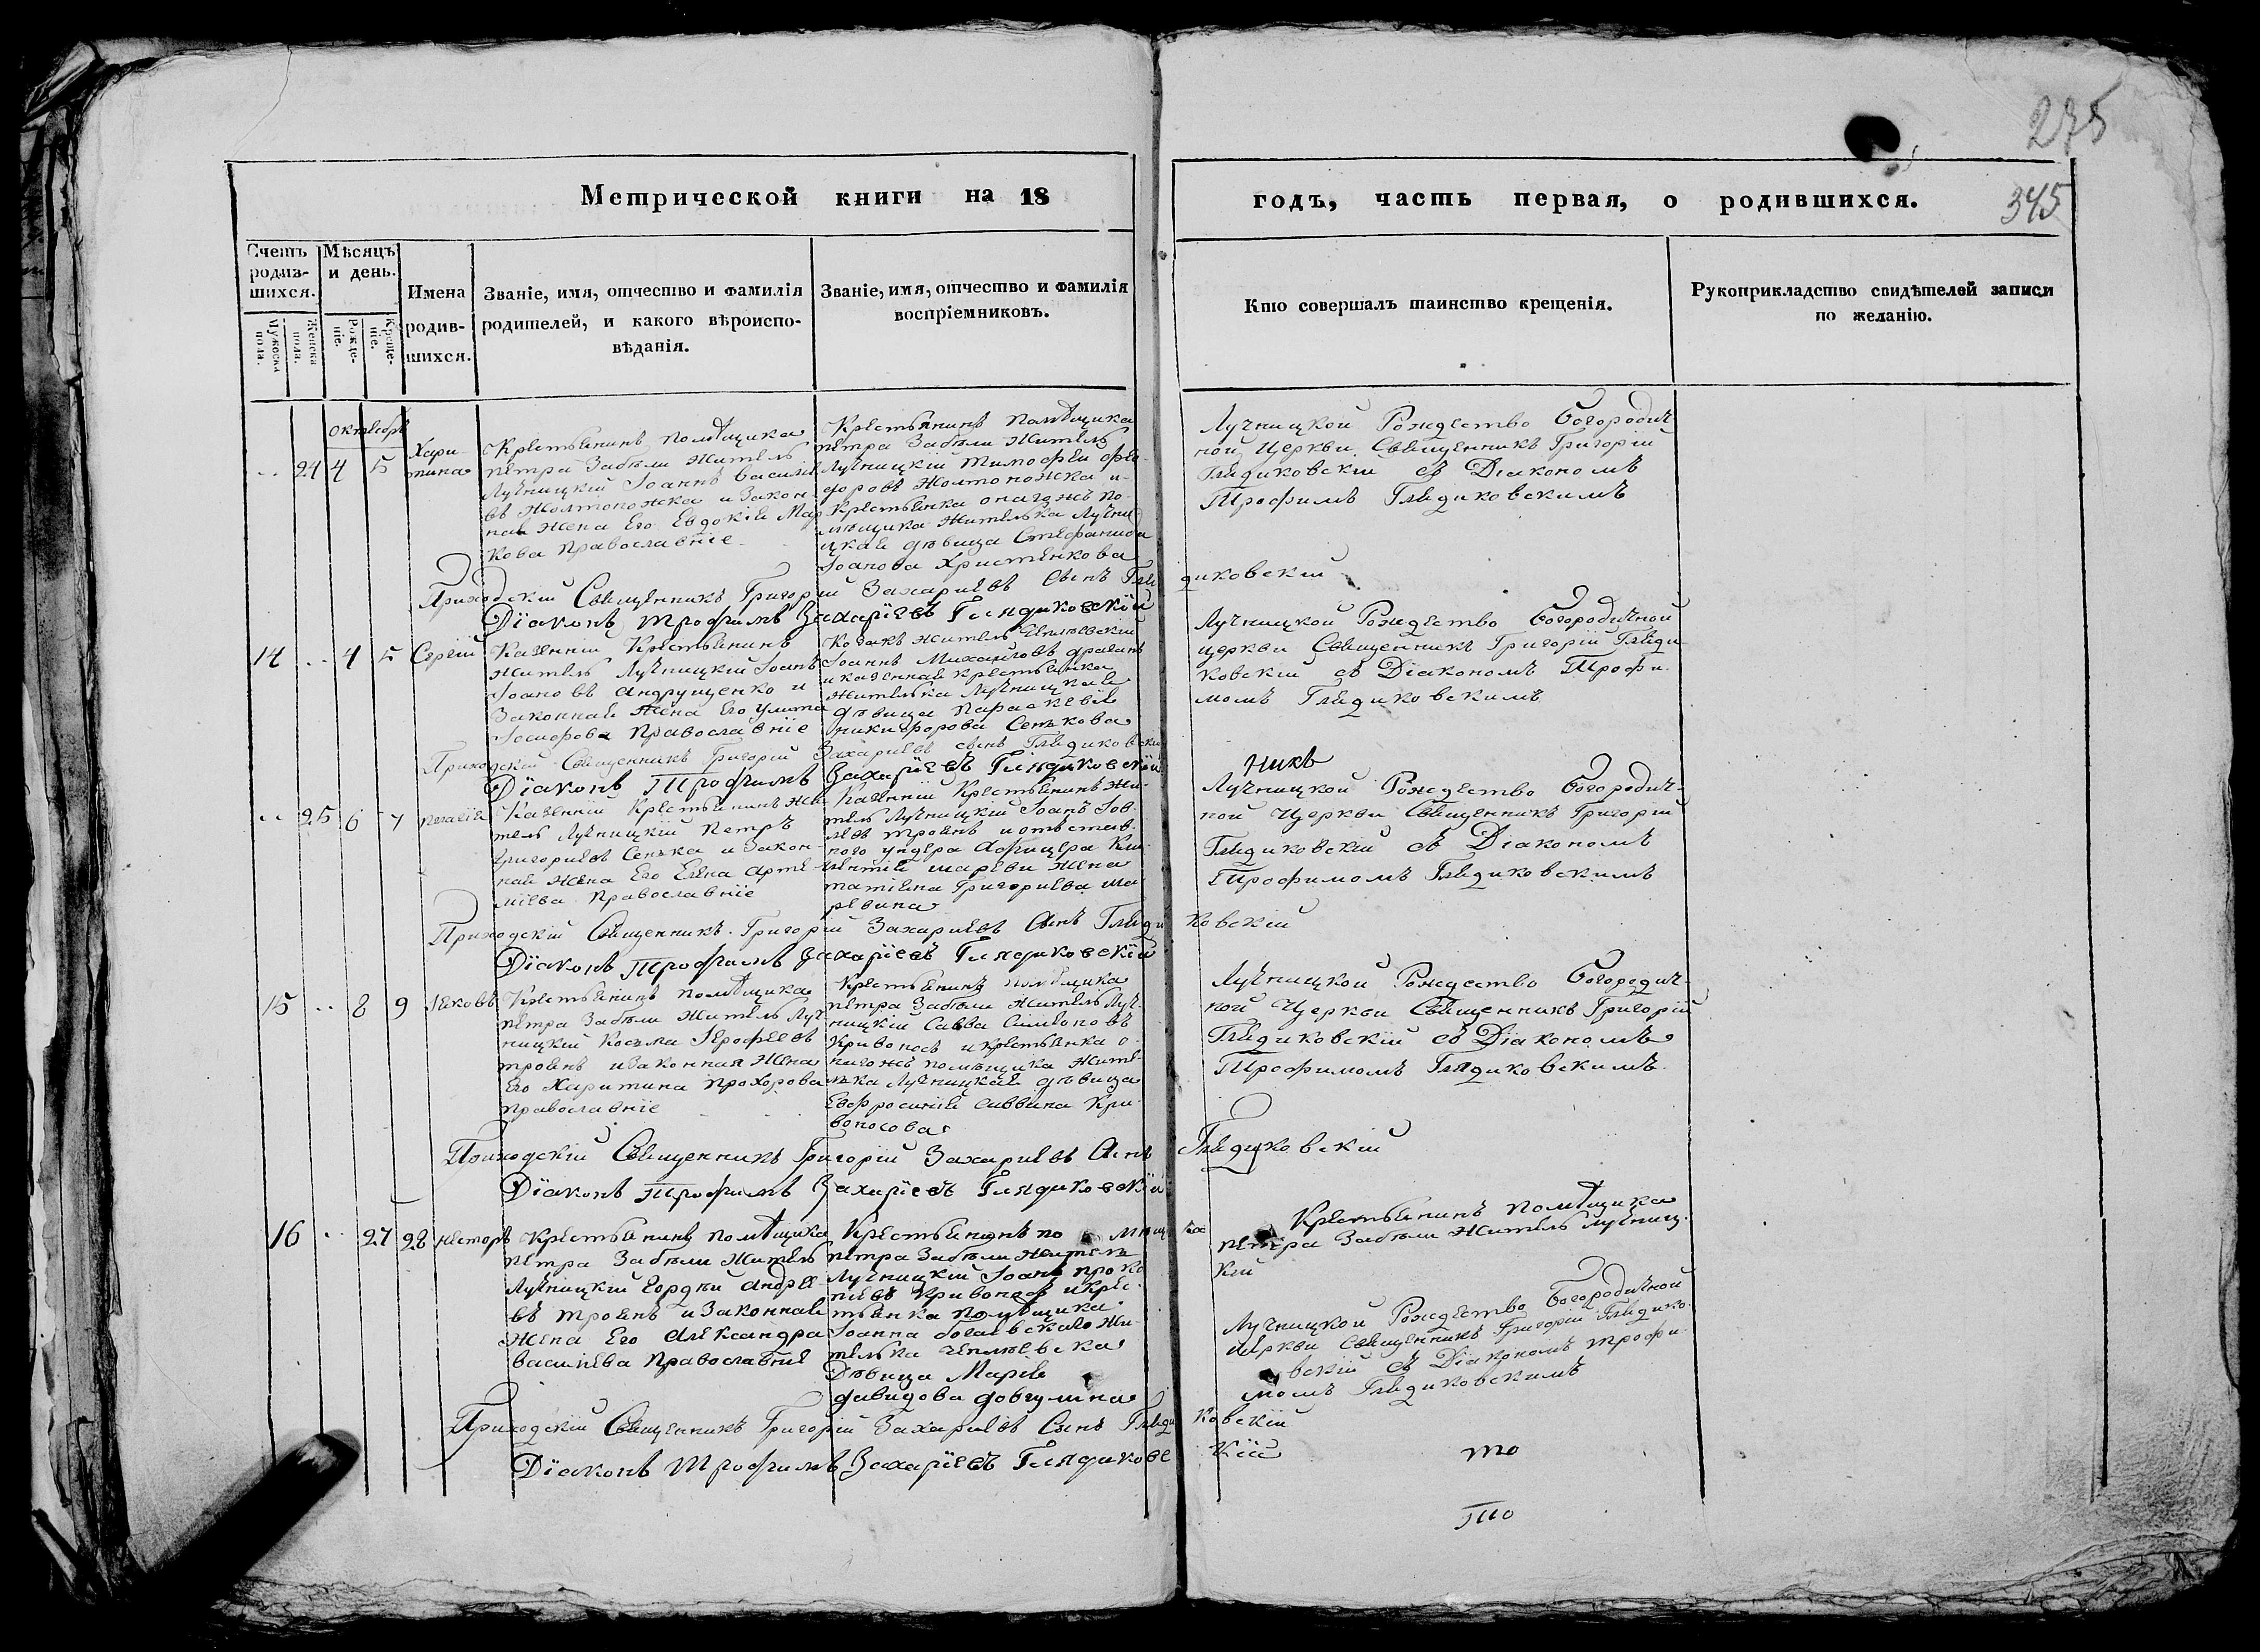 275
Метрической книги на 18 годъ, часть первая, о родившихся.
345
Счетъ родив-
шихся.
Мѣсяцъ
и день.
Мужеска
пола.
Женска
пола.
Рожде-
нiе.
Креще-
нiе.
Имена
родив-
шихся.
Званiе, имя, отчество и фамилiя
родителей, и какого вѣроиспо-
вѣданiя.
Званiе, имя, отчество и фамилiя
воспрiемниковъ.
Кто совершалъ таинство крещенiя.
Рукоприкладство свидѣтелей записи
по желанiю.
октебрь
24 4 5
Хари-
тина
Крестьенинъ помѣщика
петра Забѣли житель
Лучницкiй Iоаннъ василiе
въ Жолтоножка и Закон
ная жена Его Евдокiе Мар
кова православнiе
Крестьянинъ помѣщика
петра Забели житель
Лучницкiй тимофеи фео-
доровъ Жолтоножка и
Крестьенка оногожъ по-
мѣщика жителька Лучни
цкае дѣвица Стефанида
Iоанова Христенкова
Лучницкой Рождество Богородич
ной Церкви Священникъ Григорiй
Гледиковскiй съ Дiакономъ
Трофимъ Гледиковскимъ
Приходскiй Священникъ Григорiй Захарiевъ Сынъ Гледиковскiй
Дiаконъ Трофимъ Захарiевъ Гледиковскiй
14 .. 4 5 Сергiй
Казеннiй Крестьенинъ
житель Лучницкiй Iоанъ
Iоановъ Андрущенко и
Законнае жена Его улита
Iосифова православнiе
Козакъ житель Чеплѣевскiй
Iоаннъ Михайловъ
и казеннае крестьенка
жителька Лучницкае
дѣвица Параскевiе
никифорова Сенкова
Лучницкой Рождество Богородичной
церкви Священникъ Григорiй Гледи
ковскiй съ Дiакономъ Трофи-
момъ Гледиковскимъ
Приходскiй Священникъ Григорiй Захарiевъ сынъ Гледиковски
Дiаконъ Трофимъ Захарiевъ Гледиковскiй
никъ
.. 25 6 7 пелагiе
Казеннiй Крестьенинъ жи-
тель Лучницкiй петръ
Григориевъ Сенька и закон-
нае жена Его Елена арте-
мiева православнiе
Казеннiй Крестьенинъ жи-
тель Лучницкiй Iоанъ Iов-
левъ троенъ и отъстав-
ного ундера Афицера Кли-
ментiе шареви жена
татiена Григориева ша
ревина
Лучницкой Рождество Богородич-
ной Церкви Священникъ Григорiй
Гледиковскiй съ Дiакономъ
Трофимомъ Гледиковскимъ
Приходскiй Священникъ Григорiй Захарiевъ Сынъ Гледиковскiй
Дiаконъ Трофимъ Захарiевъ Гледиковскiй
15 .. 8 9 Iаковъ
Крестьенинъ помѣщика
петра Забѣли житель Луч-
ницкiй Косьма Iерофеевъ
троенъ и Законная жена
Его Харитина прохорова
православнiе
Крестьенинъ помѣщика
петра Забѣли житель Луч-
ницкiй Савва Симеоновъ
Кривоносъ и крестьенка о-
ногожъ помѣщика жите-
лька Лучницкае дѣвица
Евфросинiе Саввина Кри-
воносова
Лучницкой Рождество Богородич-
ной Церкви Священникъ Григорiй
Гледиковскiй съ Дiакономъ
Трофимомъ Гледиковскимъ
Приходскiй Священникъ Григорiй Захарiевъ Сынъ Гледиковскiй
Дiаконъ Трофимъ Захарiевъ Гледиковскiй
16 .. 27 28 несторъ
Крестьенинъ помѣщика
петра Забѣли житель
Лучницкiй Гордѣй Андрее-
въ троенъ и Законнае
жена Его Александра
василiева православнiе
Крестьенинъ по мѣщ ка
петра Забѣли житель
Лучницкiй Iоанъ проко
пiевъ Кривоносъ и крес-
тьенка помѣщика
Iоанна жи-
телька чеплѣевска
Дѣвица Марiе
давидова довгулина
Крестьенинъ помѣщика
петра Забѣли житель лучниц-
кiй
Лучницкой Рождество Богородичной
Церкви Священникъ Григорiй Гледико-
вскiй съ Дiакономъ трофи-
момъ Гледиковскимъ
Приходскiй Священникъ Григорiй Захарiевъ Сынъ Гледиковскiй
Дiаконъ Трофимъ Захарiевъ Гледиковскiй
то
то